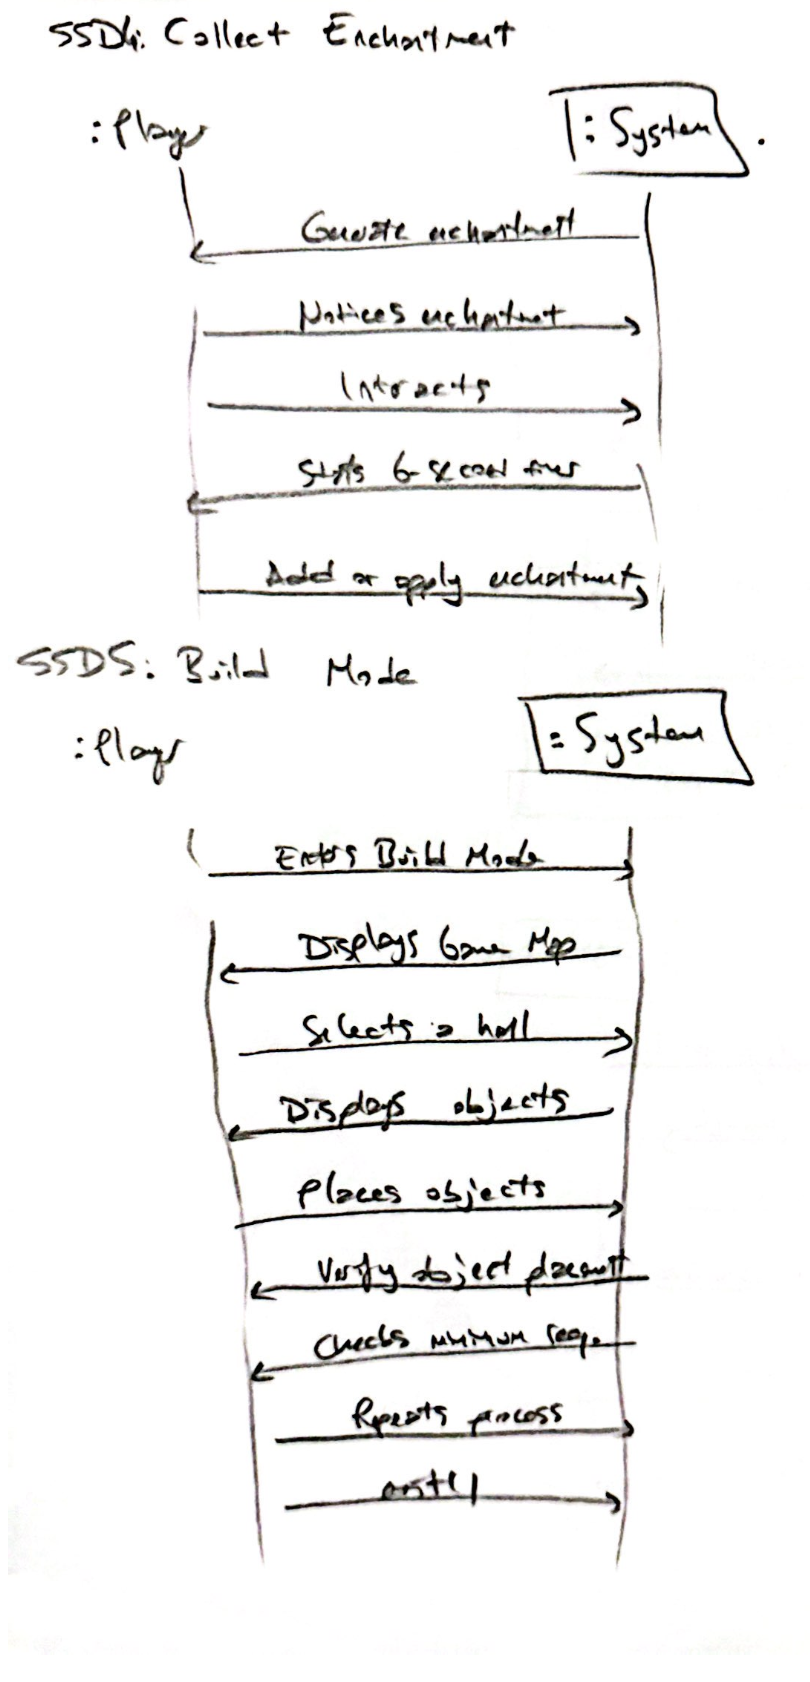 SSD4: Collect Enchantment
:Player
:System
Generate enchantment
Notices enchantment
Interacts
Starts 6-second timer
Added or apply enchantment
SSD5: Build Mode
:Player
:System
Enters Build Mode
Displays Game Map
Selects a hall
Displays objects
Places objects
Verify object placement
Checks minimum req.
Repeats process
exit()